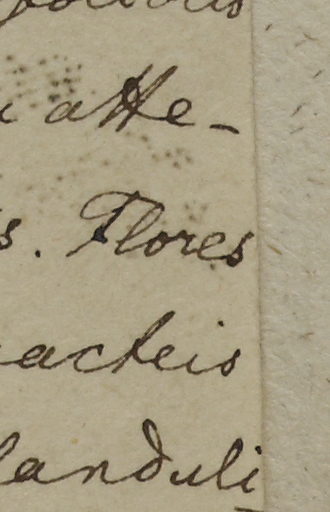 atte-
s. Flores
acteis
landuli